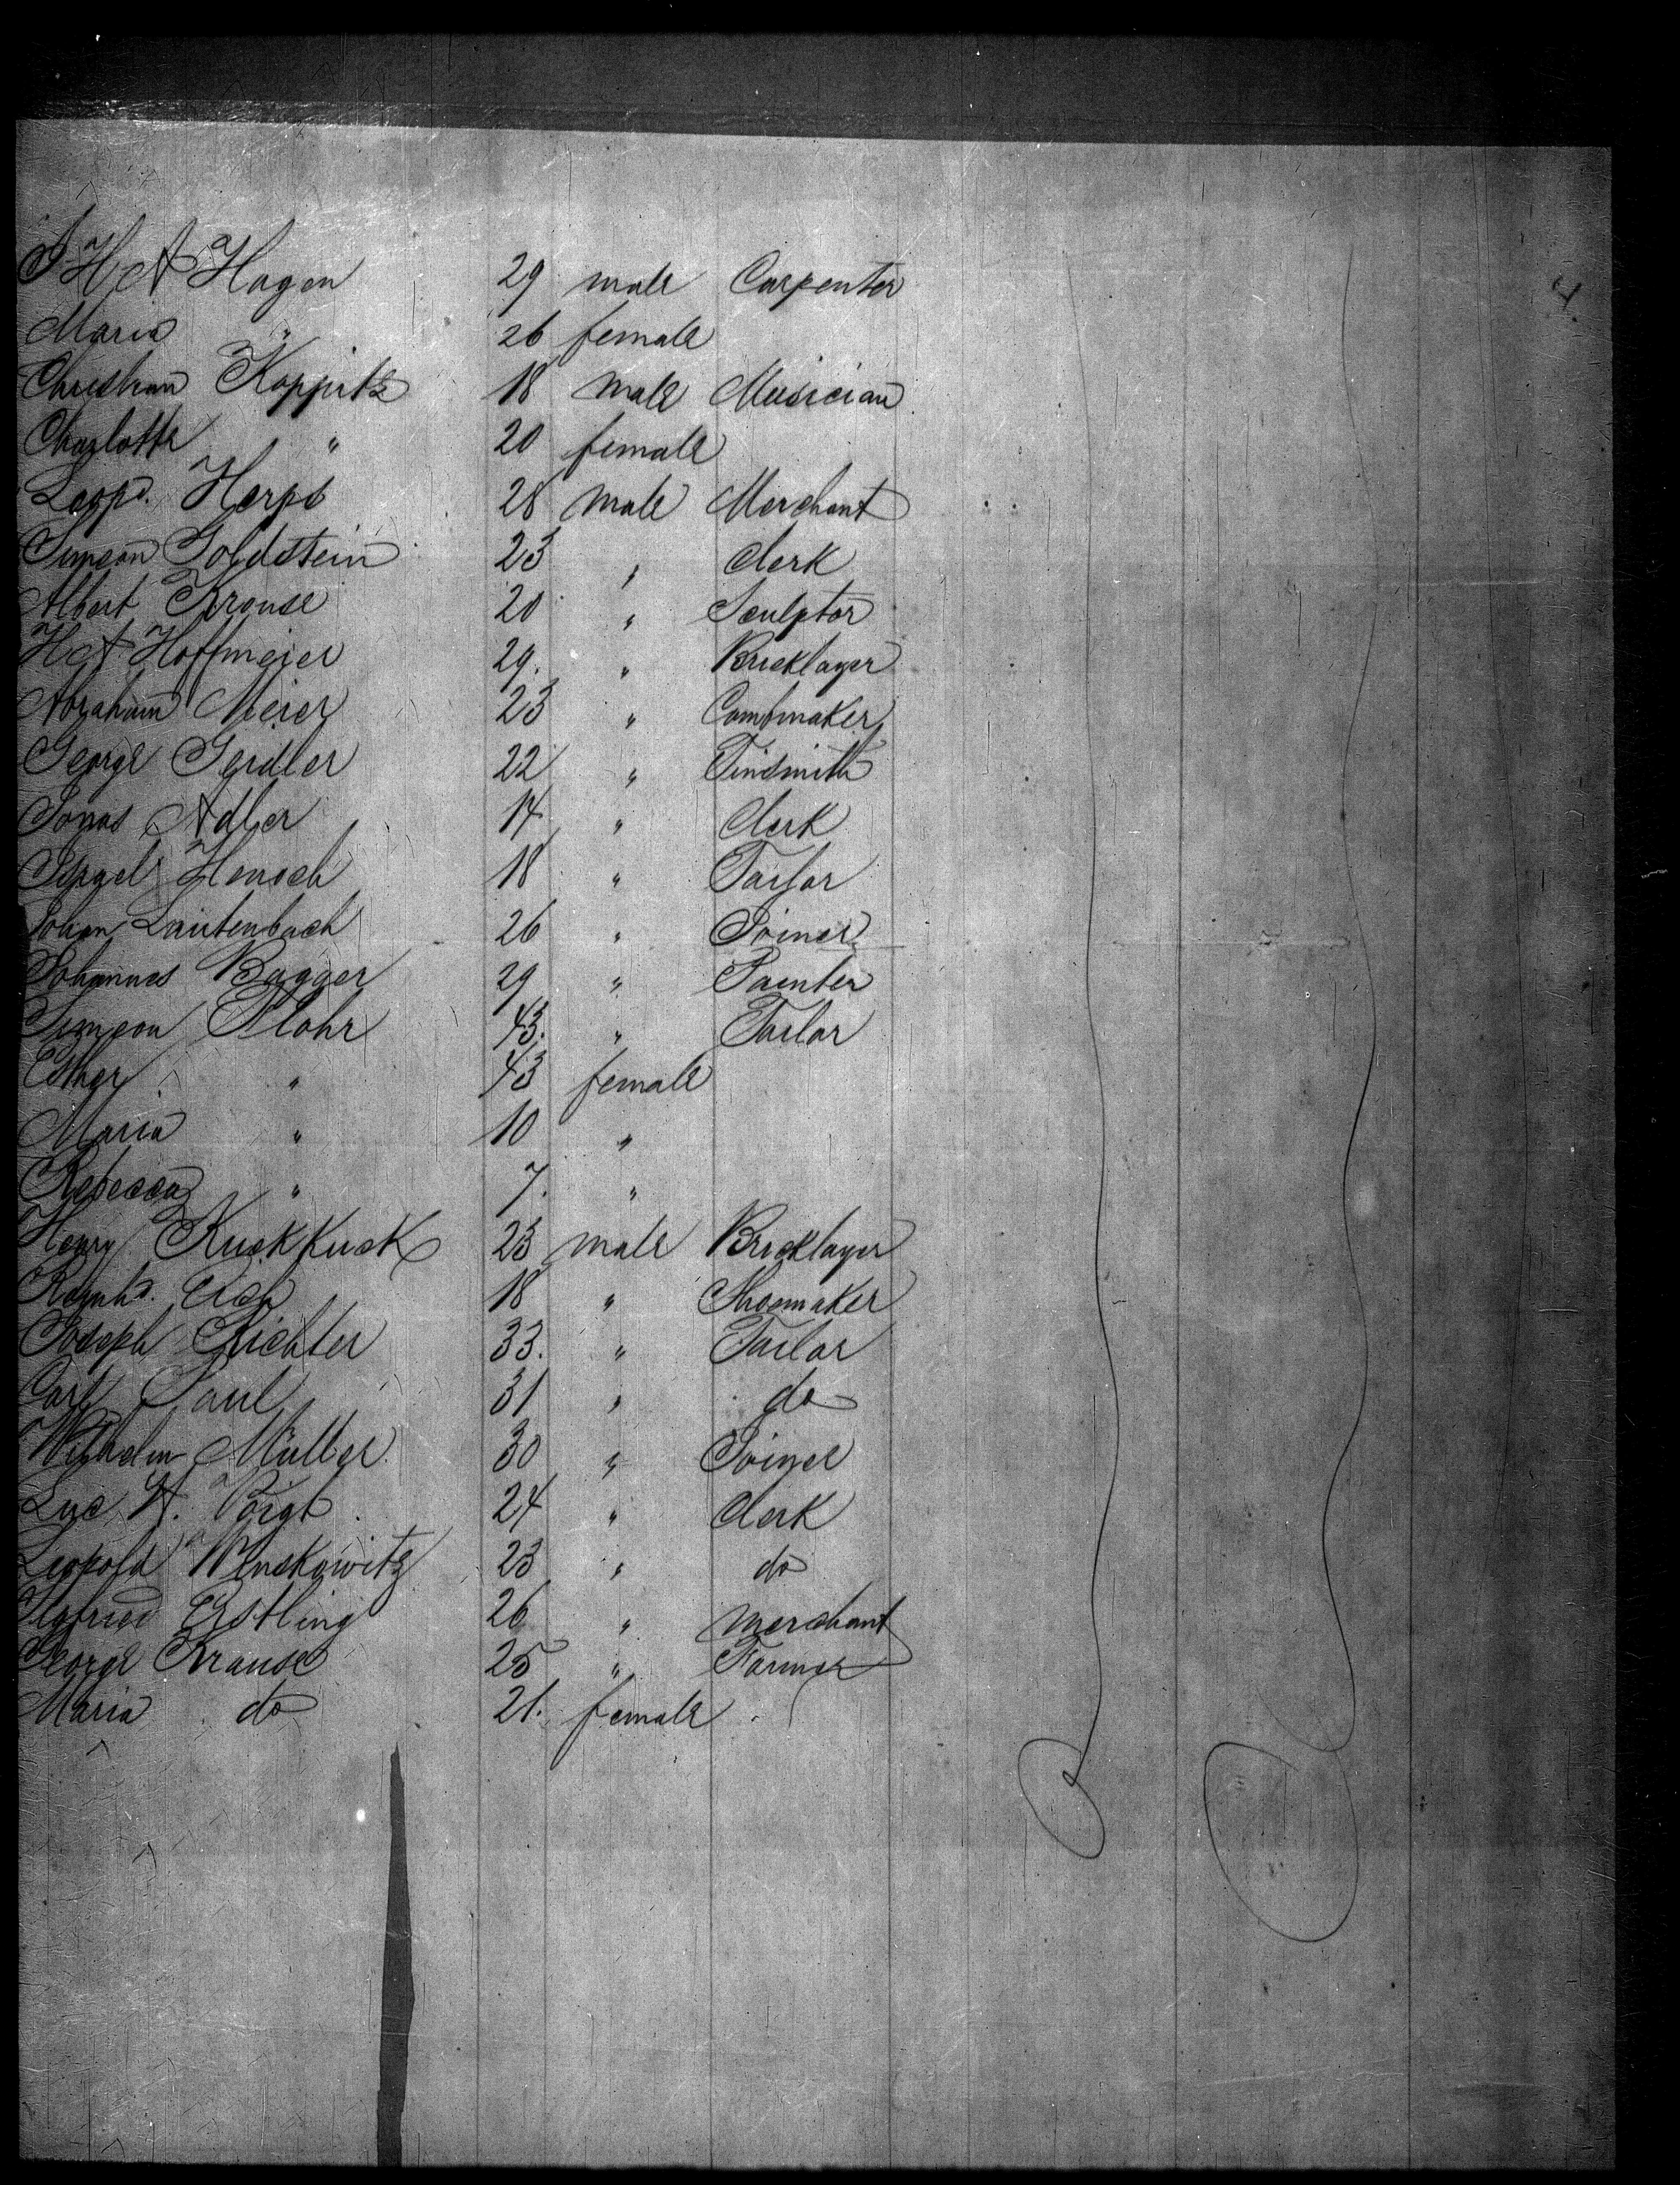 J H A Hagen 29 male Carpenter
Maria " 26 female
Christian Koppitz 18 male Musician
Charlotte " 20 female
Leopd. Herps 28 male Merchant
Simeon Goldstein 23 " clerk
Albert Krouse 20 " Sculptor
H A Hoffmeier 29. " Bricklayer
Abraham Meier 23 " Combmaker
George Geidler 22 " Tinsmith
Jonas Adler 14 " clerk
Henoch 18 " Tailor
Johan Lautenbach 26 " Joiner
Johannes Bagger 29 " Painter
Simeon Flohr 43. " Tailor
Esther " 43 female
Maria " 10 "
Rebecca " 7. "
Henry Kuckkuck 23 male Bricklayer
Reinhd. 18 " Shoemaker
Joseph Richter 33. " Tailor
Carl Paul 31 " do
Wilhelm Müller 30 " Joiner
A. Voigt 24 " clerk
Leopold Wenskowitz 23 " do
Sigfried Erstling 26 " merchant
George Krause 25 " Farmer
Maria do 21. female